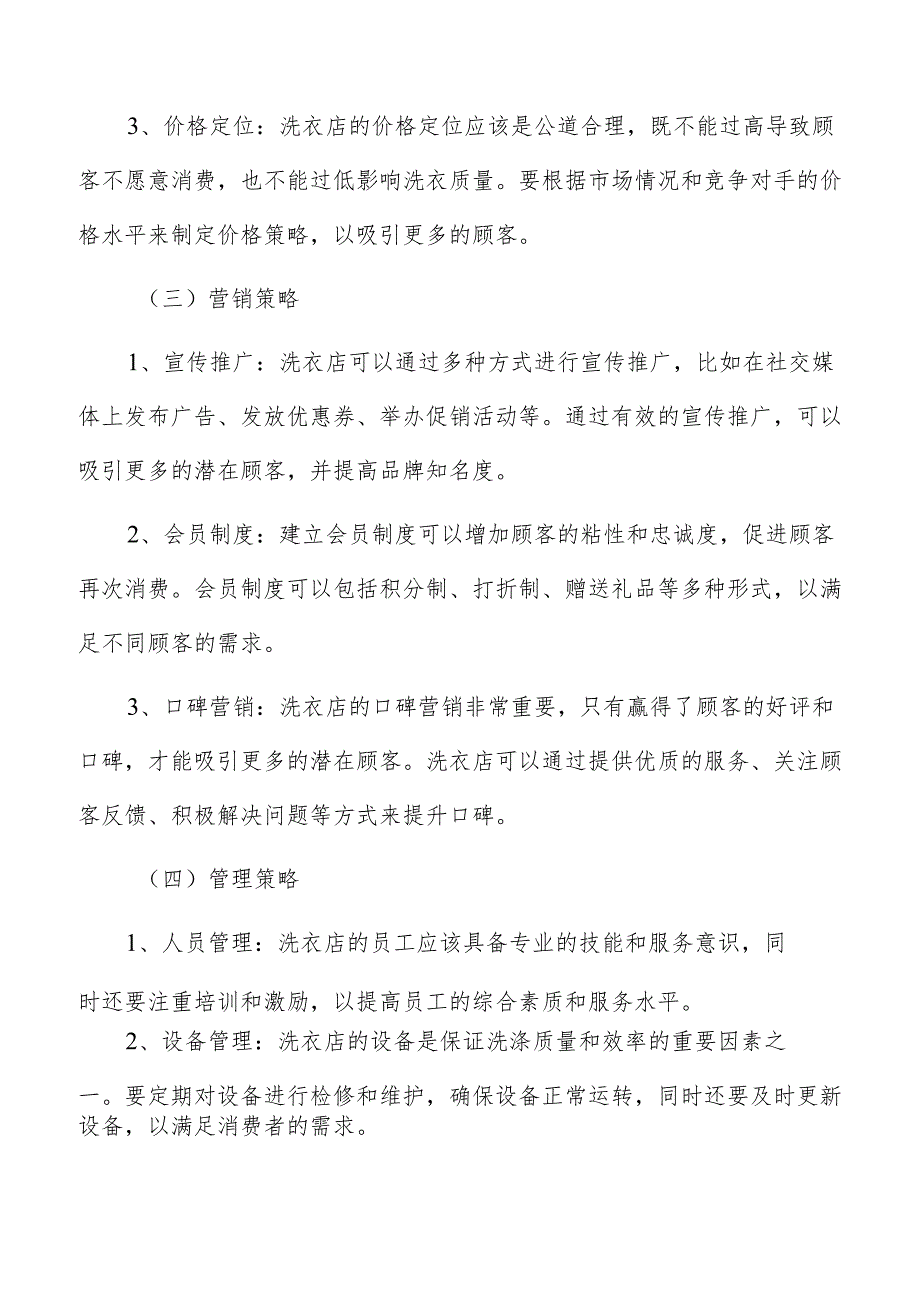 3、价格定位：洗衣店的价格定位应该是公道合理，既不能过高导致顾
客不愿意消费，也不能过低影响洗衣质量。要根据市场情况和竞争对手的价
格水平来制定价格策略，以吸引更多的顾客。
（三）营销策略
1、宣传推广：洗衣店可以通过多种方式进行宣传推广，比如在社交媒
体上发布广告、发放优惠券、举办促销活动等。通过有效的宣传推广，可以
吸引更多的潜在顾客，并提高品牌知名度。
2、会员制度：建立会员制度可以增加顾客的粘性和忠诚度，促进顾客
再次消费。会员制度可以包括积分制、打折制、赠送礼品等多种形式，以满
足不同顾客的需求。
3、口碑营销：洗衣店的口碑营销非常重要，只有赢得了顾客的好评和
口碑，才能吸引更多的潜在顾客。洗衣店可以通过提供优质的服务、关注顾
客反馈、积极解决问题等方式来提升口碑。
（四）管理策略
1、人员管理：洗衣店的员工应该具备专业的技能和服务意识，同
时还要注重培训和激励，以提高员工的综合素质和服务水平。
2、设备管理：洗衣店的设备是保证洗涤质量和效率的重要因素之
一。要定期对设备进行检修和维护，确保设备正常运转，同时还要及时更新
设备，以满足消费者的需求。